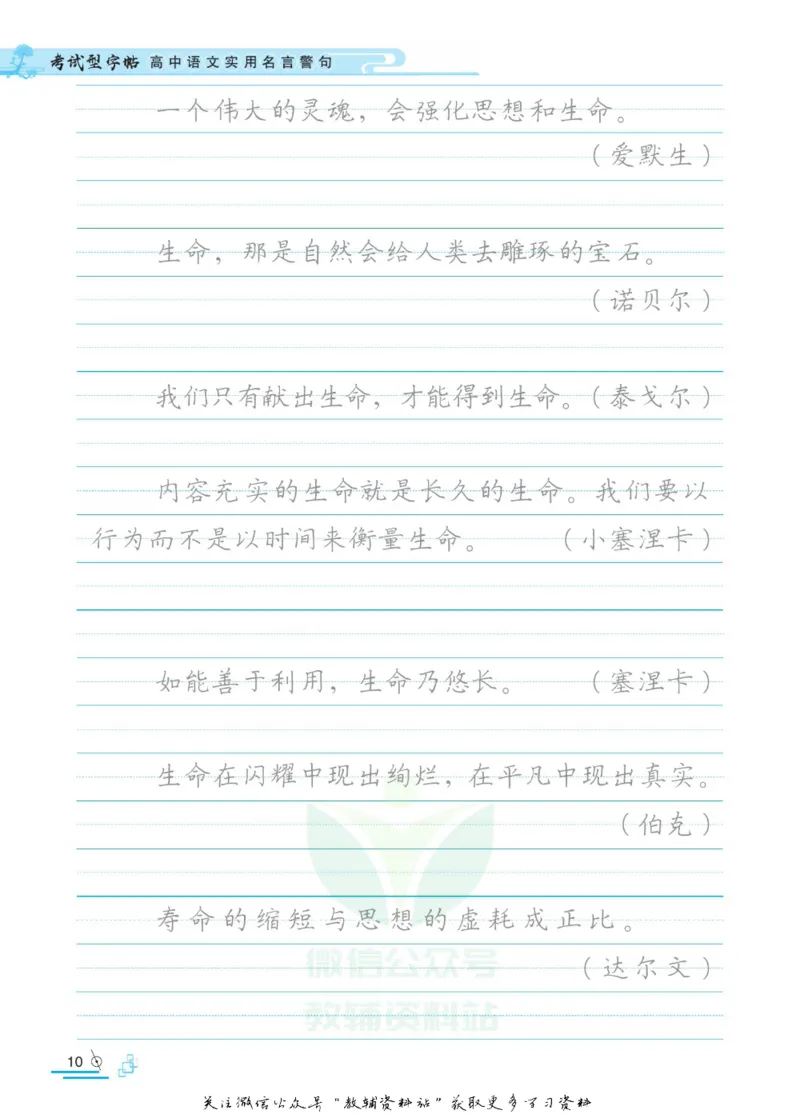 考试型字帖 高中语文实用名言警句
一个伟大的灵魂，会强化思想和生命。
（爱默生）
生命，那是自然会给人类去雕琢的宝石。
（诺贝尔）
我们只有献出生命，才能得到生命。（泰戈尔）
内容充实的生命就是长久的生命。我们要以
行为而不是以时间来衡量生命。 （小塞涅卡）
如能善于利用，生命乃悠长。 （塞涅卡）
生命在闪耀中现出绚烂，在平凡中现出真实。
（伯克）
寿命的缩短与思想的虚耗成正比。
（达尔文）
微信公众号
教辅资料站
10
关注微信公众号“教辅资料站”获取更多学习资料